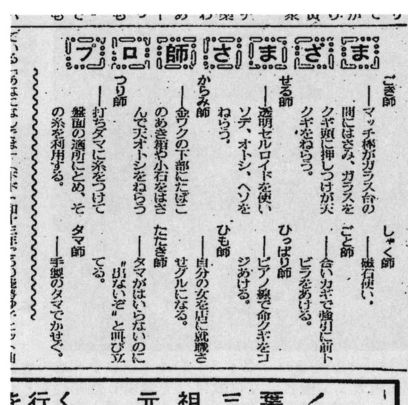 プロ師さまざま
ごき師
――マッチ棒がガラス台の
間にはさみ、ガラスを
クギ頭に押しつけが天
クギをねらう。
せる師
――透明セルロイドを使い
ソデ、オトシ、ヘソを
ねらう。
からみ師
――金ワクの下部にたばこ
のあき箱や小石をはさ
んで天オトシをねらう
つり師
――打ちダマに糸をつけて
盤面の適所にとめ、そ
の糸を利用する。
しゃく師
――磁石使い。
ごと師
――合いカギで強引に前ト
ビラをあける。
ひっぱり師
――ピアノ線で命クギをコ
ジあける。
ひも師
――自分の女を店に就職さ
せグルになる。
たたき師
――タマがはいらないのに
"出ないぞ"と叫び立
てる。
タマ師
――手製のタマでかせぐ。
を行く 元祖三葉